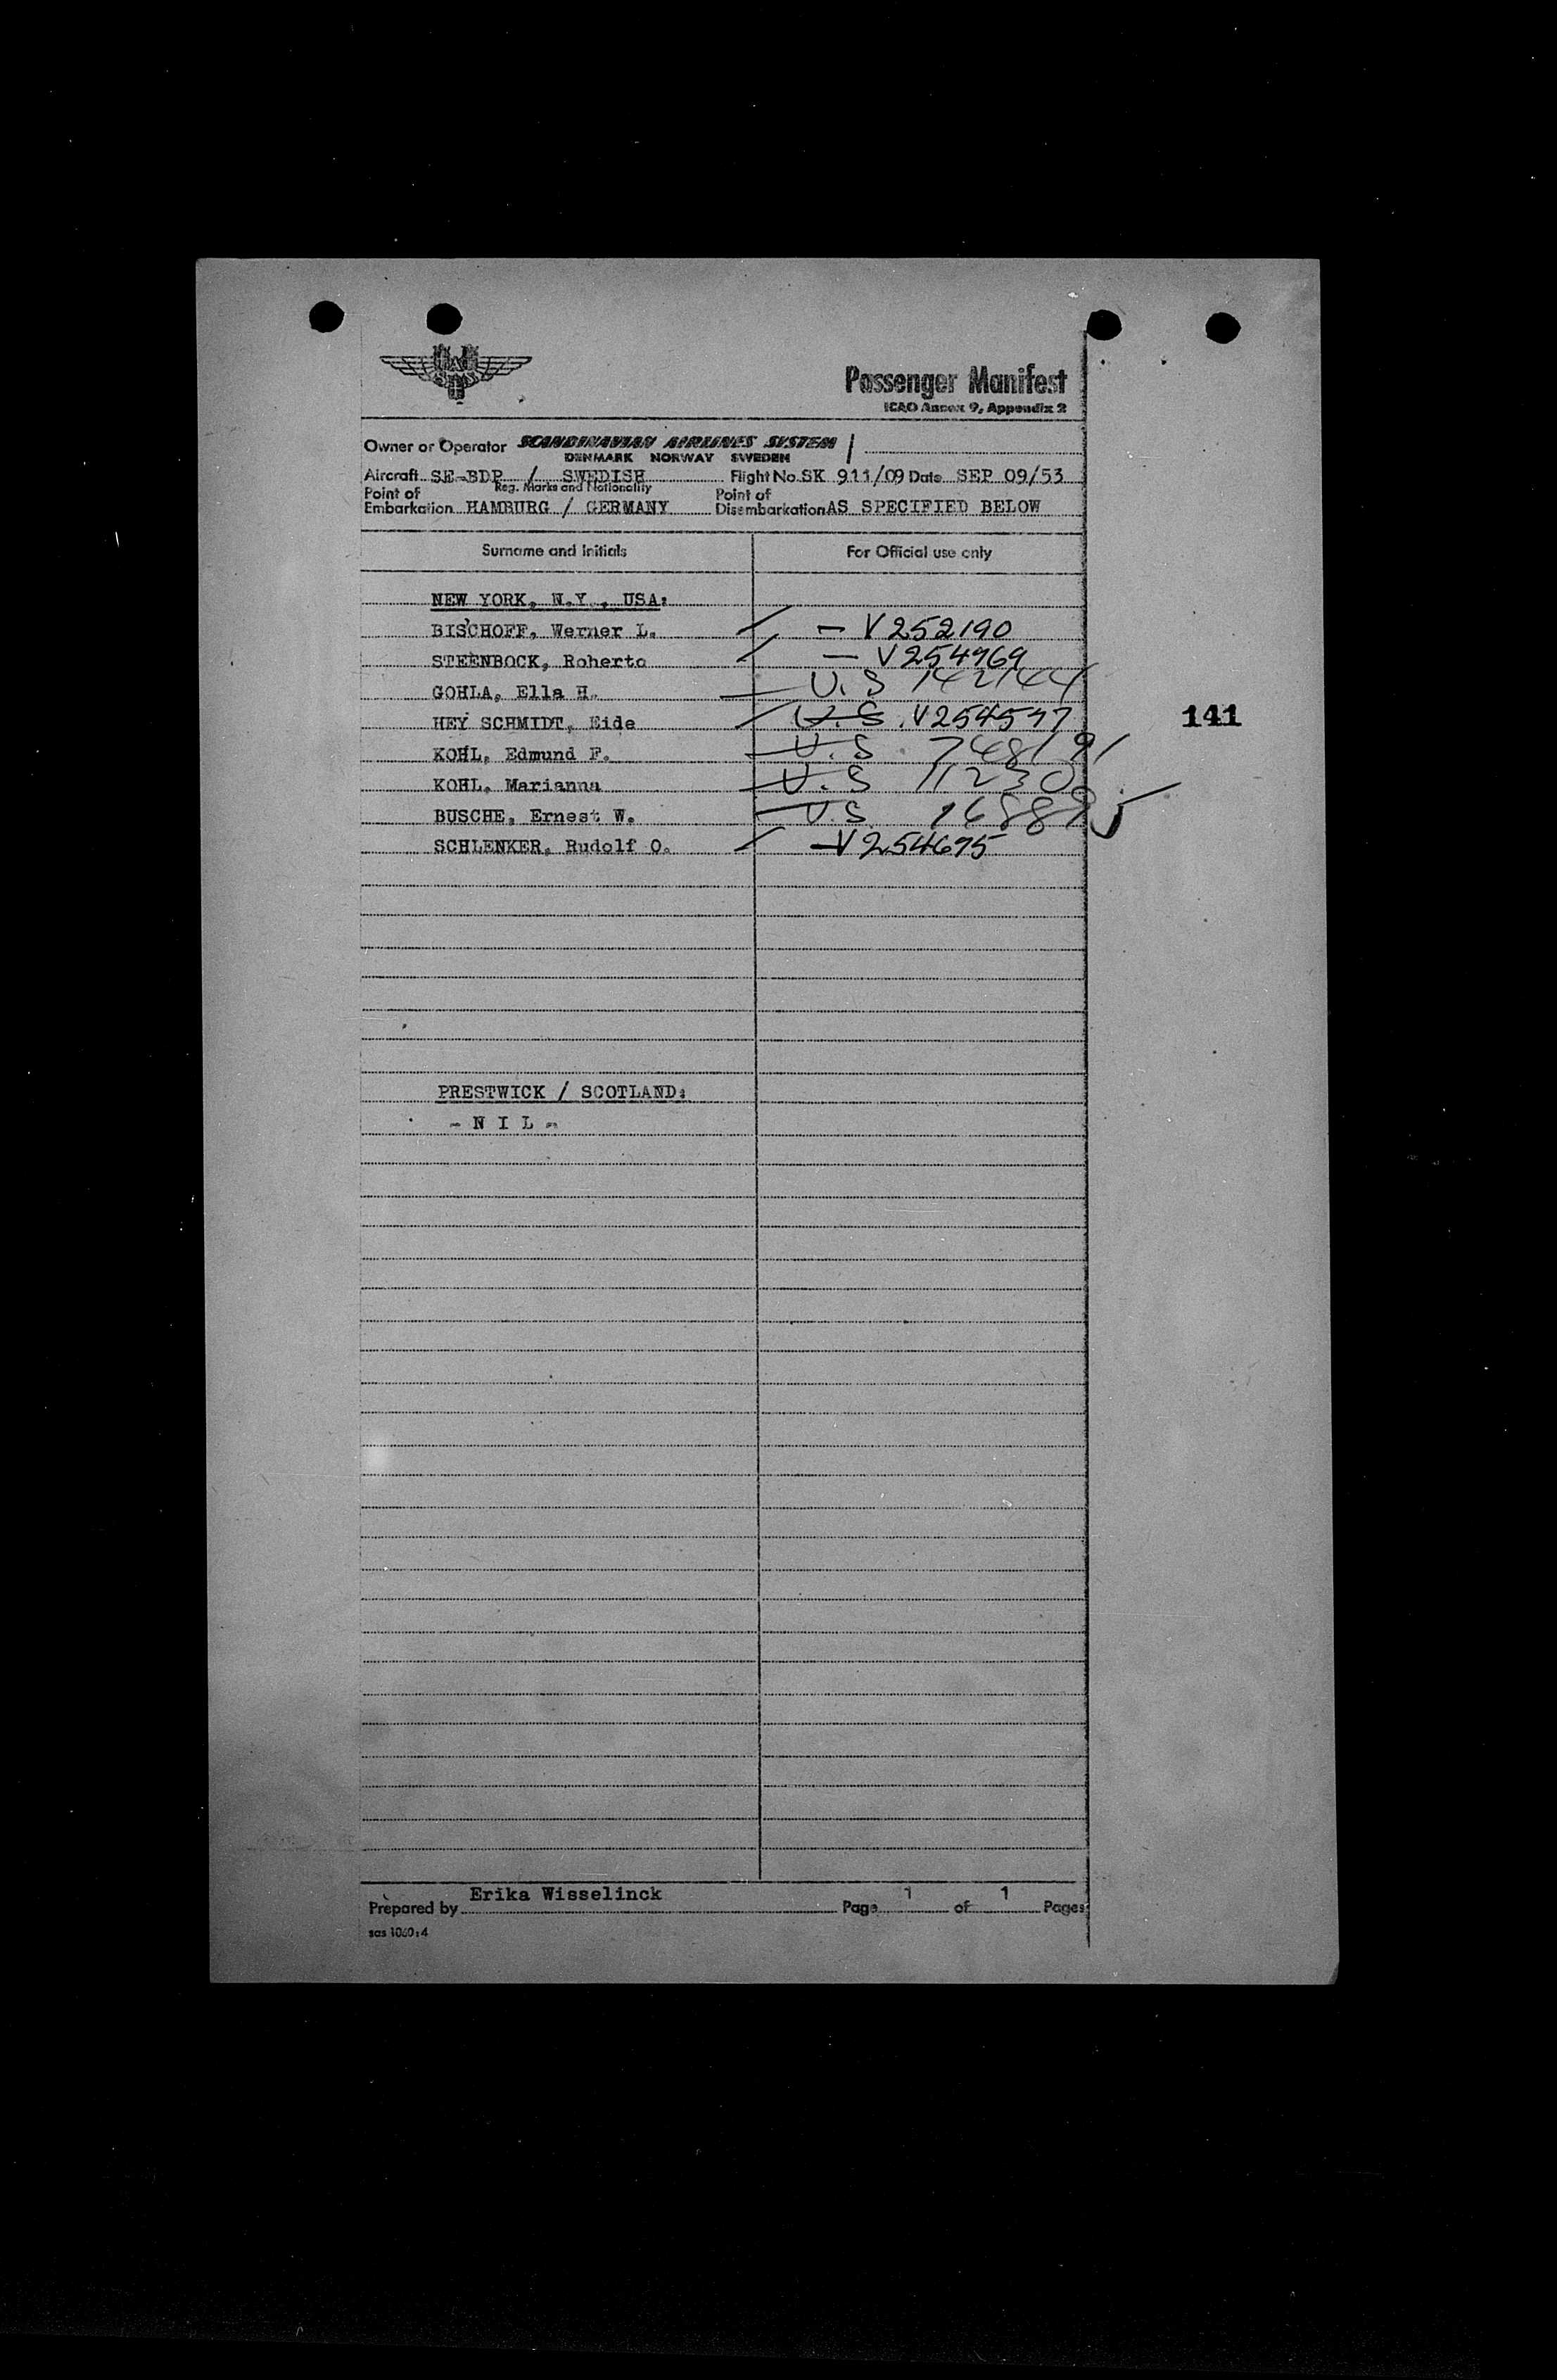 Passenger Manifest
ICAO Annex 9, Appendix 2
Owner or Operator SCANDINAVIAN AIRLINES SYSTEM /
DENMARK NORWAY SWEDEN
Aircraft SE-BDP / SWEDISH Flight No. SK 911/09 Date SEP 09/53
Reg. Marks and Nationality
Point of Embarkation HAMBURG / GERMANY Point of Disembarkation AS SPECIFIED BELOW
Surname and Initials For Official use only
NEW YORK, N.Y., USA:
BISCHOFF, Werner L. — V252190
STEENBOCK, Roberto — V254969
GOHLA, Ella H. U.S 142144
HEY SCHMIDT, Eide U.S. V254547
141
KOHL, Edmund F. U.S. 748191
KOHL, Marianna U.S 11230
BUSCHE, Ernest W. U.S.
SCHLENKER, Rudolf O. — V254695
PRESTWICK / SCOTLAND:
- N I L -
Erika Wisselinck
Prepared by Page 1 of 1 Pages
sas 1060:4